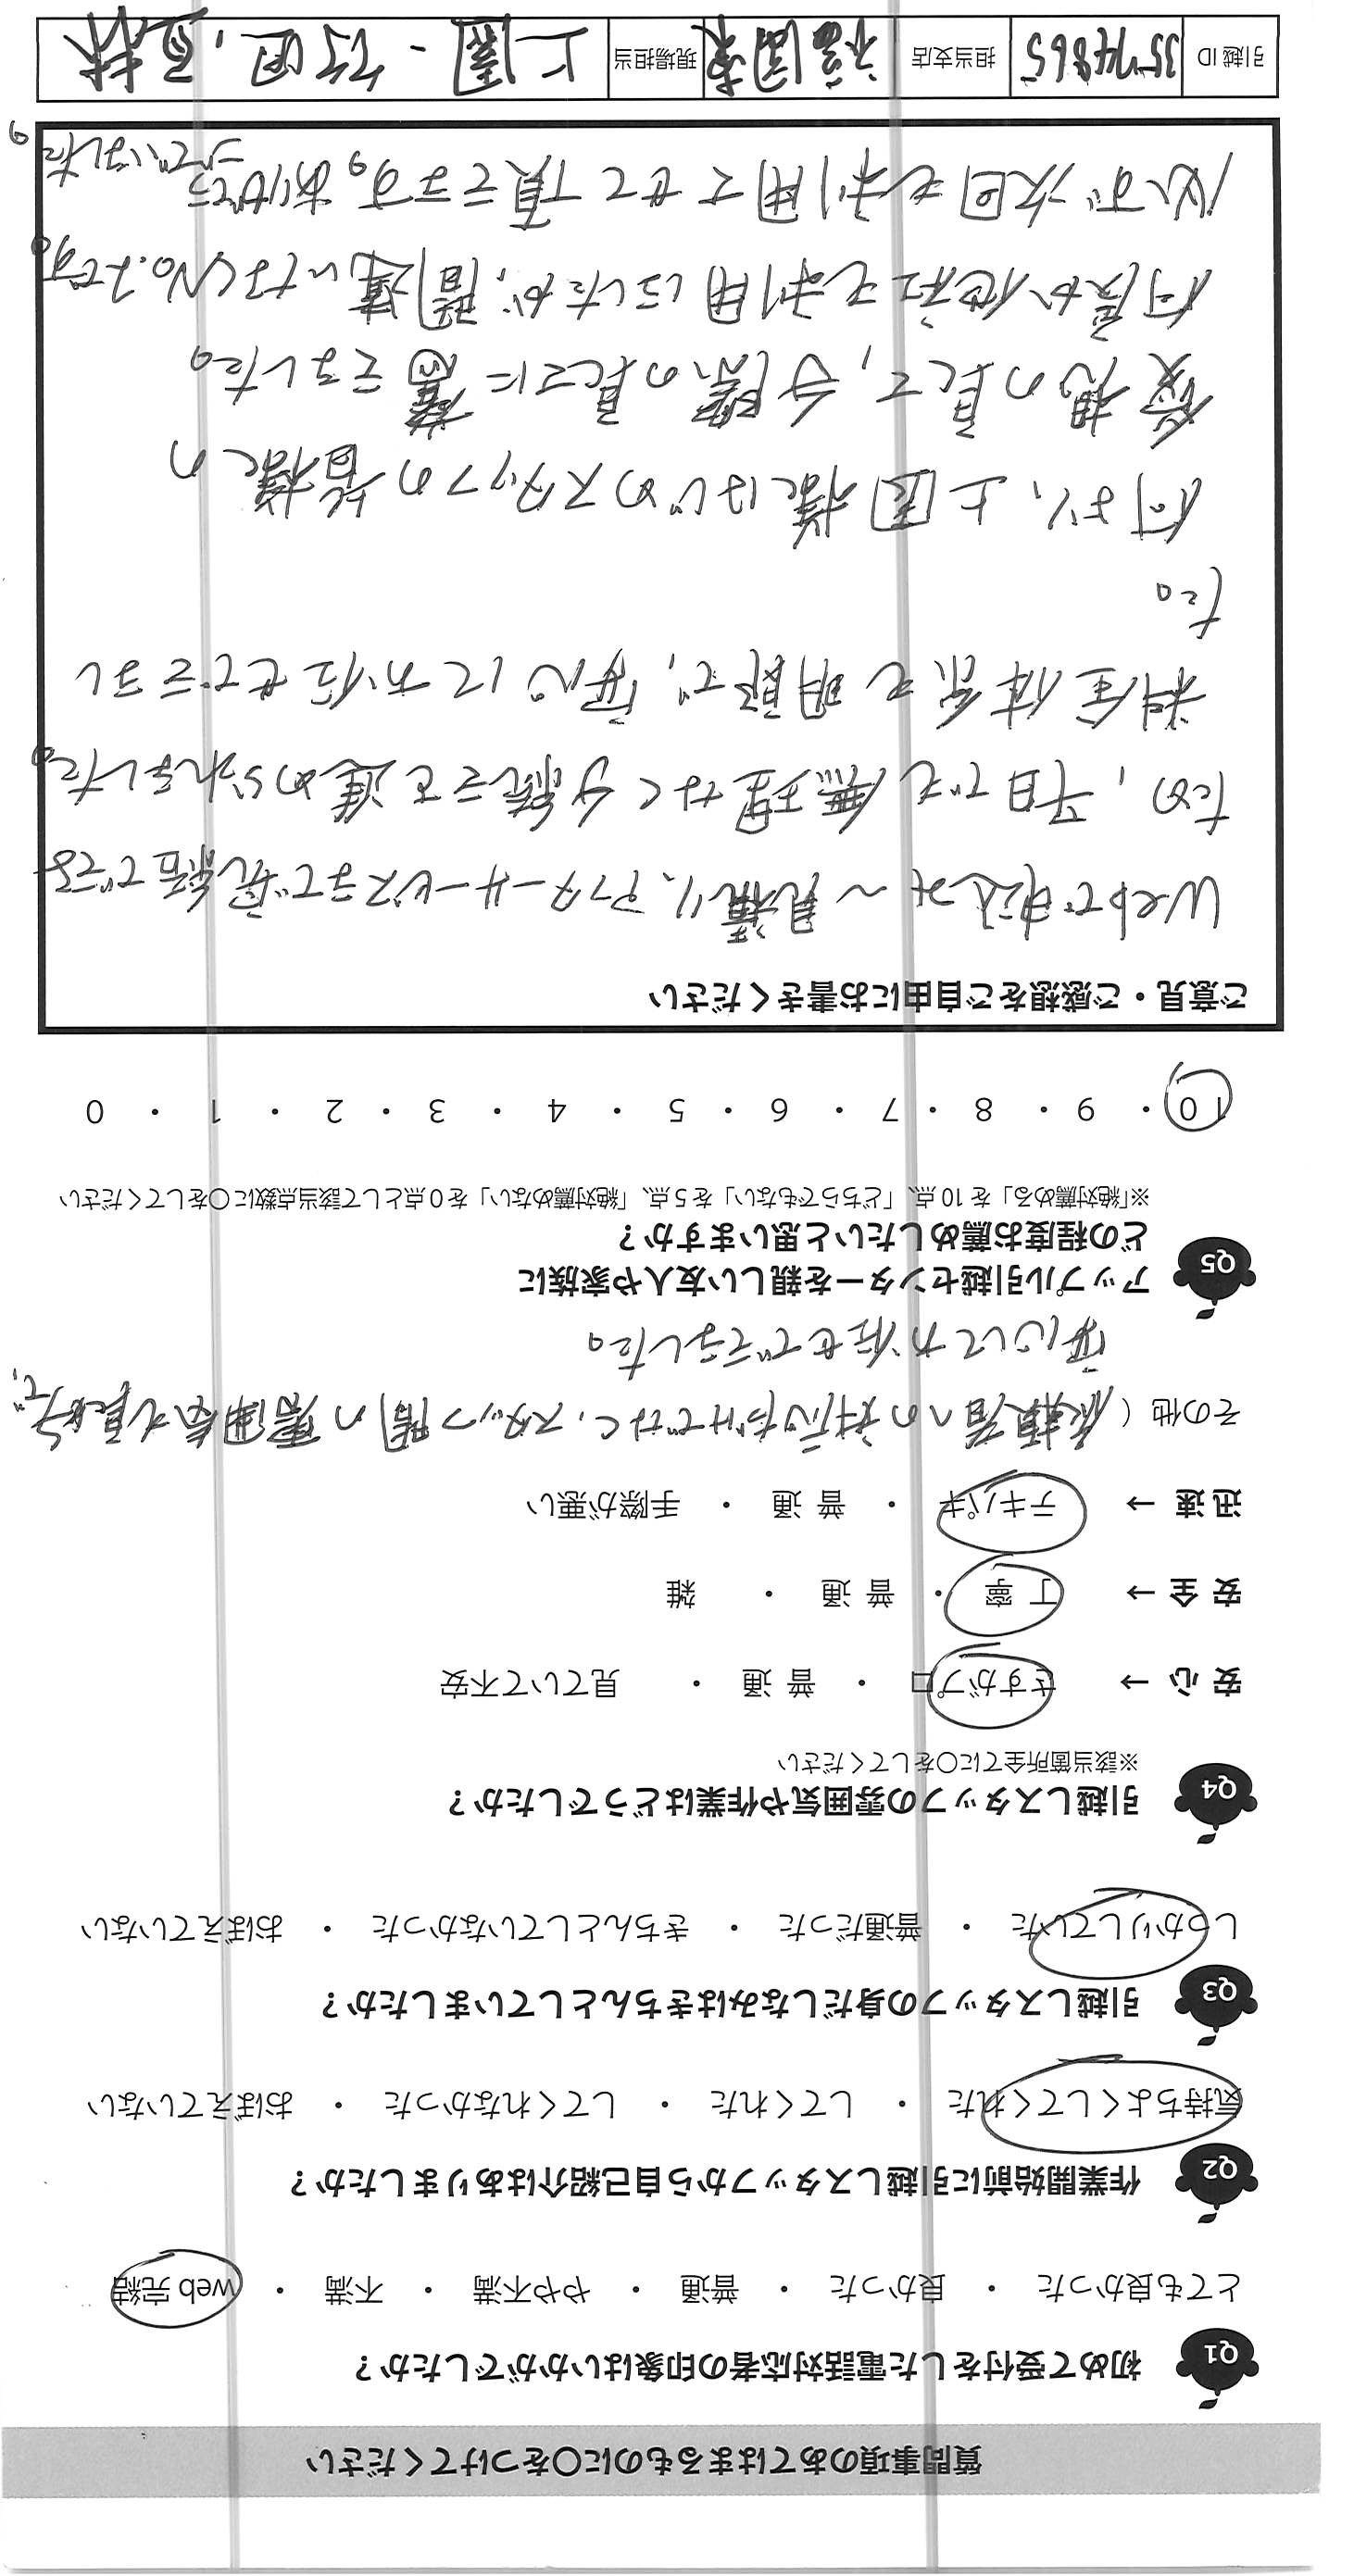 質問事項のあてはまるものに〇をつけてください
Q1 初めて受付をした電話対応者の印象はいかがでしたか？
とても良かった ・ 良かった ・ 普通 ・ やや不満 ・ 不満 ・ web 完結
Q2 作業開始前に引越しスタッフから自己紹介はありましたか？
気持ちよくしてくれた ・ してくれた ・ してくれなかった ・ おぼえていない
Q3 引越しスタッフの身だしなみはきちんとしていましたか？
しっかりしていた ・ 普通だった ・ きちんとしていなかった ・ おぼえていない
Q4 引越しスタッフの雰囲気や作業はどうでしたか？
※該当箇所全てに〇をしてください
安 心 → さすがプロ ・ 普 通 ・ 見ていて不安
安 全 → 丁 寧 ・ 普 通 ・ 雑
迅 速 → テキパキ ・ 普 通 ・ 手際が悪い
その他（ 依頼者への対応だけでなく、スタッフ間の雰囲気も良好で、
安心してお任せできました。
Q5 アップル引越センターを親しい友人や家族に
どの程度お薦めしたいと思いますか？
※「絶対薦める」を 10 点、「どちらでもない」を 5 点、「絶対薦めない」を 0 点として該当点数に〇をしてください
10 ・ 9 ・ 8 ・ 7 ・ 6 ・ 5 ・ 4 ・ 3 ・ 2 ・ 1 ・ 0
ご意見・ご感想をご自由にお書きください
Webで申込み〜見積り、アフターサービスまで完結できる
ため、平日でも無理なく手続きを進められました。
料金体系も明瞭で、安心してお任せできまし
た。
何より、上園様はじめスタッフの皆様の
愛想の良さ、手際の良さに驚きました。
何度か他社も利用しましたが、間違いなくNo.1です。
必ず次回も利用させて頂きます。ありがとう
ございました。
引越 ID 3574865 担当支店 福岡東 現場担当 上園・竹田、